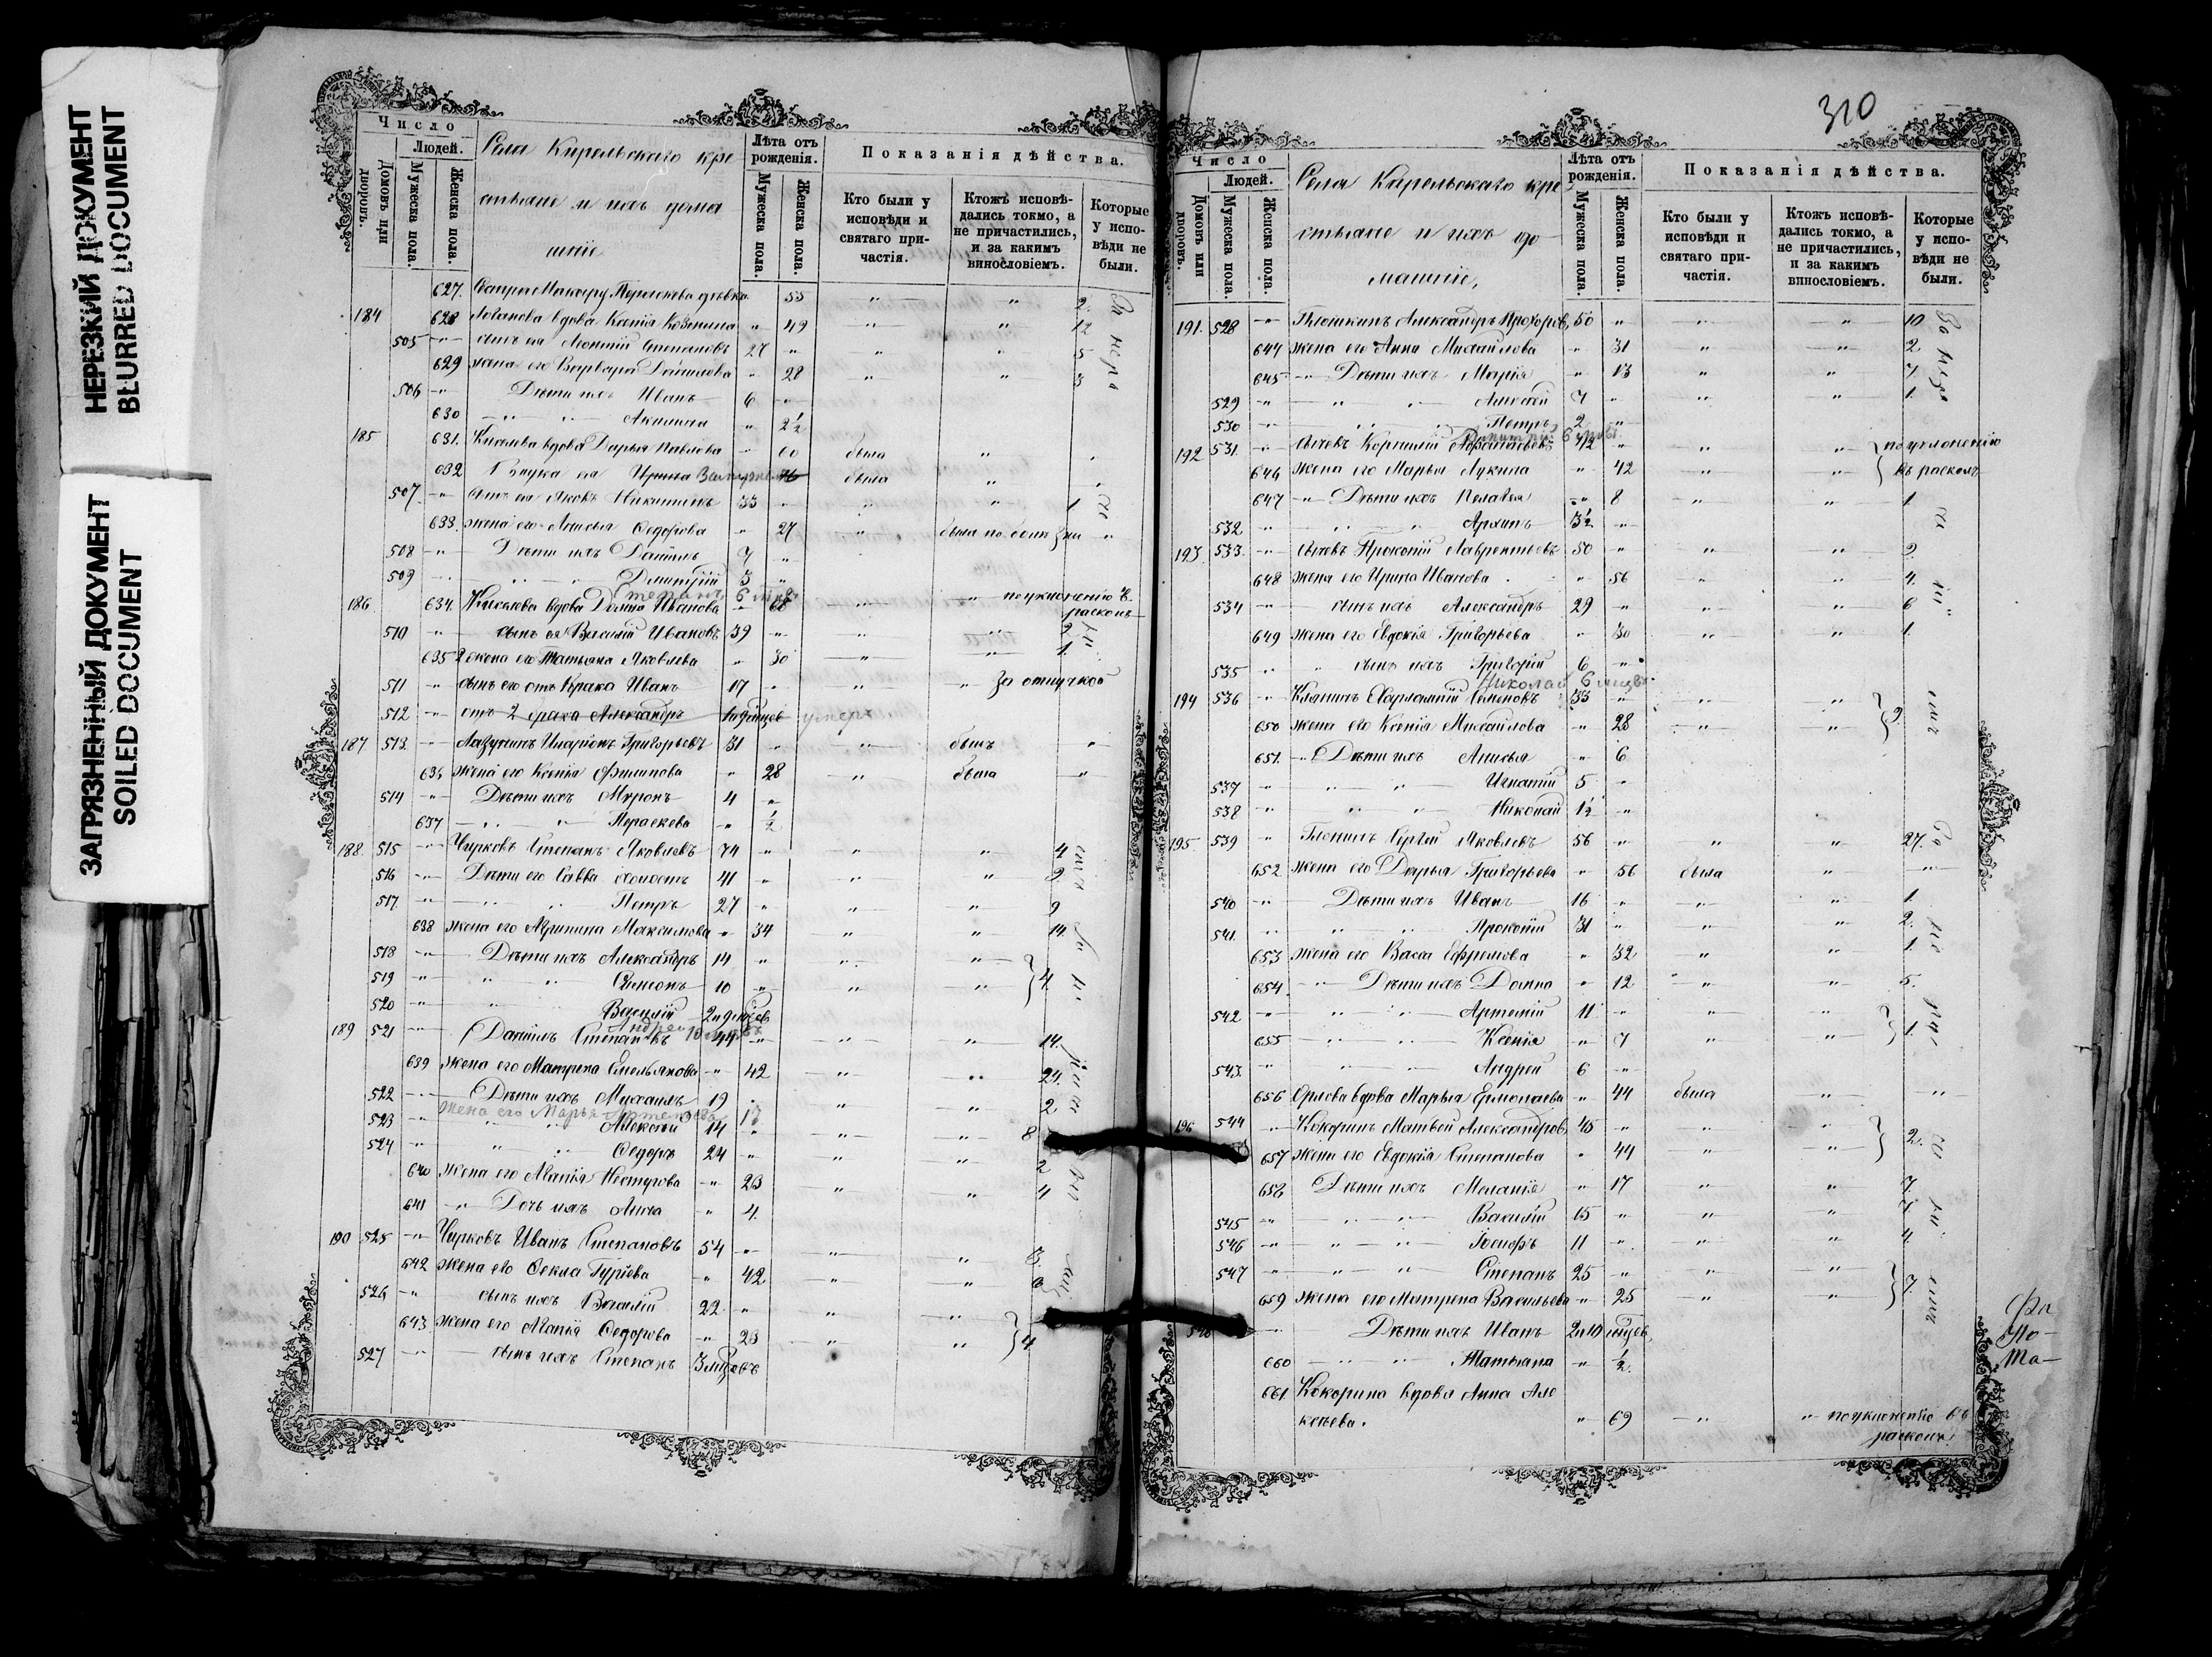 НЕРЕЗКИЙ ДОКУМЕНТ
BLURRED DOCUMENT
ЗАГРЯЗНЕННЫЙ ДОКУМЕНТ
SOILED DOCUMENT
Число
Людей.
Домовъ или дворовъ.
Мужеска пола.
Женска пола.
Села Кирельскаго кре
стьяне и ихъ дома
шніе
Лѣта отъ рожденія.
Мужеска пола.
Женска пола.
Показанія дѣйства.
Кто были у исповѣди и святаго причастія.
Ктожъ исповѣдались токмо, а не причастились, и за какимъ винословіемъ.
Которые у исповѣди не были.
627. 55 " " 2.
184 628 вдова Ксенія " 49 " " 12
505 -"- сынъ ея Леонтій Степановъ 27 " " " 5
629 жена его Варвара Данилова " 28 " " 3
506 -"- Дѣти ихъ Иванъ 6 -"-
630 -"- Акилина " 2½
185 631. Киселева вдова Дарья Павлова " 60 была " "
632 Внука ея Ирина была " "
507. -"- сынъ ея Яковъ Никитинъ 33 " " " 1
633. жена его Анисья Ѳедорова " 27 "
508 -"- Дѣти ихъ Даніилъ 7 "
509 -"- Димитрій 3 "
Степанъ 6
186 634 Киселева вдова Домна Иванова " 68 -"- " по уклоненію въ
расколъ
510 " сынъ ея Василій Ивановъ 39 " " " 2
635 2 жена его Татьяна Яковлева " 30 " " 1.
511 " сынъ его отъ 1 брака Иванъ 17 " " " За отлучкой
512 " отъ 2 брака Александръ умеръ
187. 513. -"- Лазунинъ Иларіонъ Григорьевъ 31 " " былъ "
636 жена его Ксенія Филипова " 28 " была "
514 -"- Дѣти ихъ Миронъ 4 "
637 -"- Параскева " ½
188. 515 -"- Чирковъ Степанъ Яковлевъ 74 " " " 4
516 -"- Дѣти его Савва холостъ 41 " " " 2
517 -"- Петръ 27 " " " 9
638 жена его Агрипина Максимова " 34 " " 14.
518 -"- Дѣти ихъ Александръ 14 " " "
519 -"- Симеонъ 10 " " " 4.
520 -"- Василій
Андрей
189 521 -"- Даніилъ Степановъ 44 " " " 14.
639 жена его Матрена Емельянова " 42 " " 24.
522 -"- Дѣти ихъ Михаилъ 19 " " 2
жена его Марья 17
523 -"- Алексѣй 14 " " " 8
524 -"- Ѳедоръ 24 " " " 2
640 жена его Агапія Несторова " 23 " " 4
641 -"- Дочь ихъ Анна " 4.
190 525 -"- Чирковъ Иванъ Степановъ 54 " " " 3.
642 жена его Ѳекла Гуріева " 42 " "
526 -"- сынъ ихъ Василій 22 " " "
643 жена его Агапія Ѳедорова " 23 " " 4
527 -"- сынъ ихъ Степанъ 3 мѣсяцевъ
310
Число
Людей.
Домовъ или дворовъ.
Мужеска пола.
Женска пола.
Села Кирельскаго кре
стьяне и ихъ до
машніе,
Лѣта отъ рожденія.
Мужеска пола.
Женска пола.
Показанія дѣйства.
Кто были у исповѣди и святаго причастія.
Ктожъ исповѣдались токмо, а не причастились, и за какимъ винословіемъ.
Которые у исповѣди не были.
191. 528 -"- Александръ Прохоровъ 50 " " " 10
644 жена его Анна Михайлова " 31 " " 2
645 -"- Дѣти ихъ Марія " 13 " " 7.
529 -"- Алексѣй 7 " " " 1.
530 -"- Петръ 2 "
192 531. -"- Сычевъ Корнилій 42 " " " по уклоненію
646 жена его Марья Лукина " 42 " " въ расколъ
647 -"- Дѣти ихъ Пелагея " 8 " " 1
532 " Архипъ 3½ "
193. 533. -"- Сычевъ Прокопій Лаврентьевъ 50 " " " 2.
648 жена его Ирина Иванова " 56 " " 4.
534 -"- сынъ ихъ Александръ 29 " " " 6
649 жена его Евдокія Григорьева " 30 " " 1.
535 " сынъ ихъ Григорій 6 "
Николай 6
194 536 -"- Харлампій Семеновъ 33 " " "
650 жена его Ксенія Михайлова " 28 " " 9.
651. -"- Дѣти ихъ Анисья " 6
537 " Игнатій 5 "
538 " Николай 1½ "
195. 539 " Сергѣй Яковлевъ 56 " " " 27.
652 жена его Дарья Григорьева " 56 была " "
540 -"- Дѣти ихъ Иванъ 16 " " " 1
541. " Прокопій 31 " " " 2.
653 жена его Васса Ефремова " 32 " " 1.
654 -"- Дѣти ихъ Домна " 12 " " 5.
542 -"- Артемій 11 " " "
655 -"- Ксенія " 7 " " 1.
543. " Андрей 6 "
656 Орлова вдова Марья Ермолаева " 44 была " "
196 544 -"- Кокоринъ Матвей Александровъ 45 " " "
657 жена его Евдокія Степанова " 44 " " 2.
658 Дѣти ихъ Меланія " 17 " " 7.
545 -"- Василій 15 " " " 7
546 " Іосифъ 11 " " " 4.
547 -"- Степанъ 25 " " "
659 жена его Матрена Васильева " 25 " " 7.
548 -"- Дѣти ихъ Иванъ 2 и 10 мцев.
660 -"- Татьяна " ½.
661 Кокорина вдова Анна Але
ксѣева. " 69 -"- " по уклоненію въ
расколъ